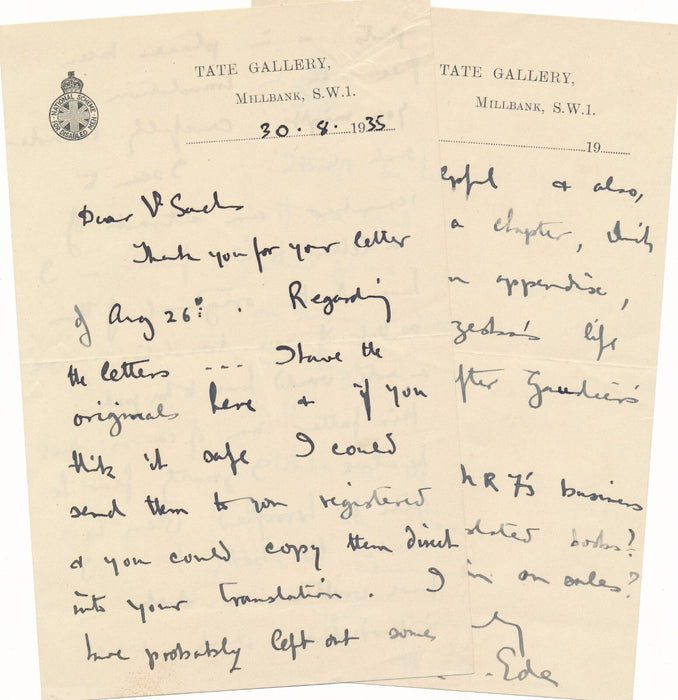 NATIONAL SCHEME
FOR DISABLED MEN
TATE GALLERY,
MILLBANK, S.W.1.
30.8.1935
Dear
Thank you for your letter
of Aug 26th. Regarding
the letters --- I have the
originals here & if you
think it safe I could
send them to you registered
& you could copy them direct
into your translation. I
have probably left out some
TATE GALLERY,
MILLBANK, S.W.1.
19
& also,
a chapter,
appendix,
life
Gaudier's
business
books?
on sales?
Ede